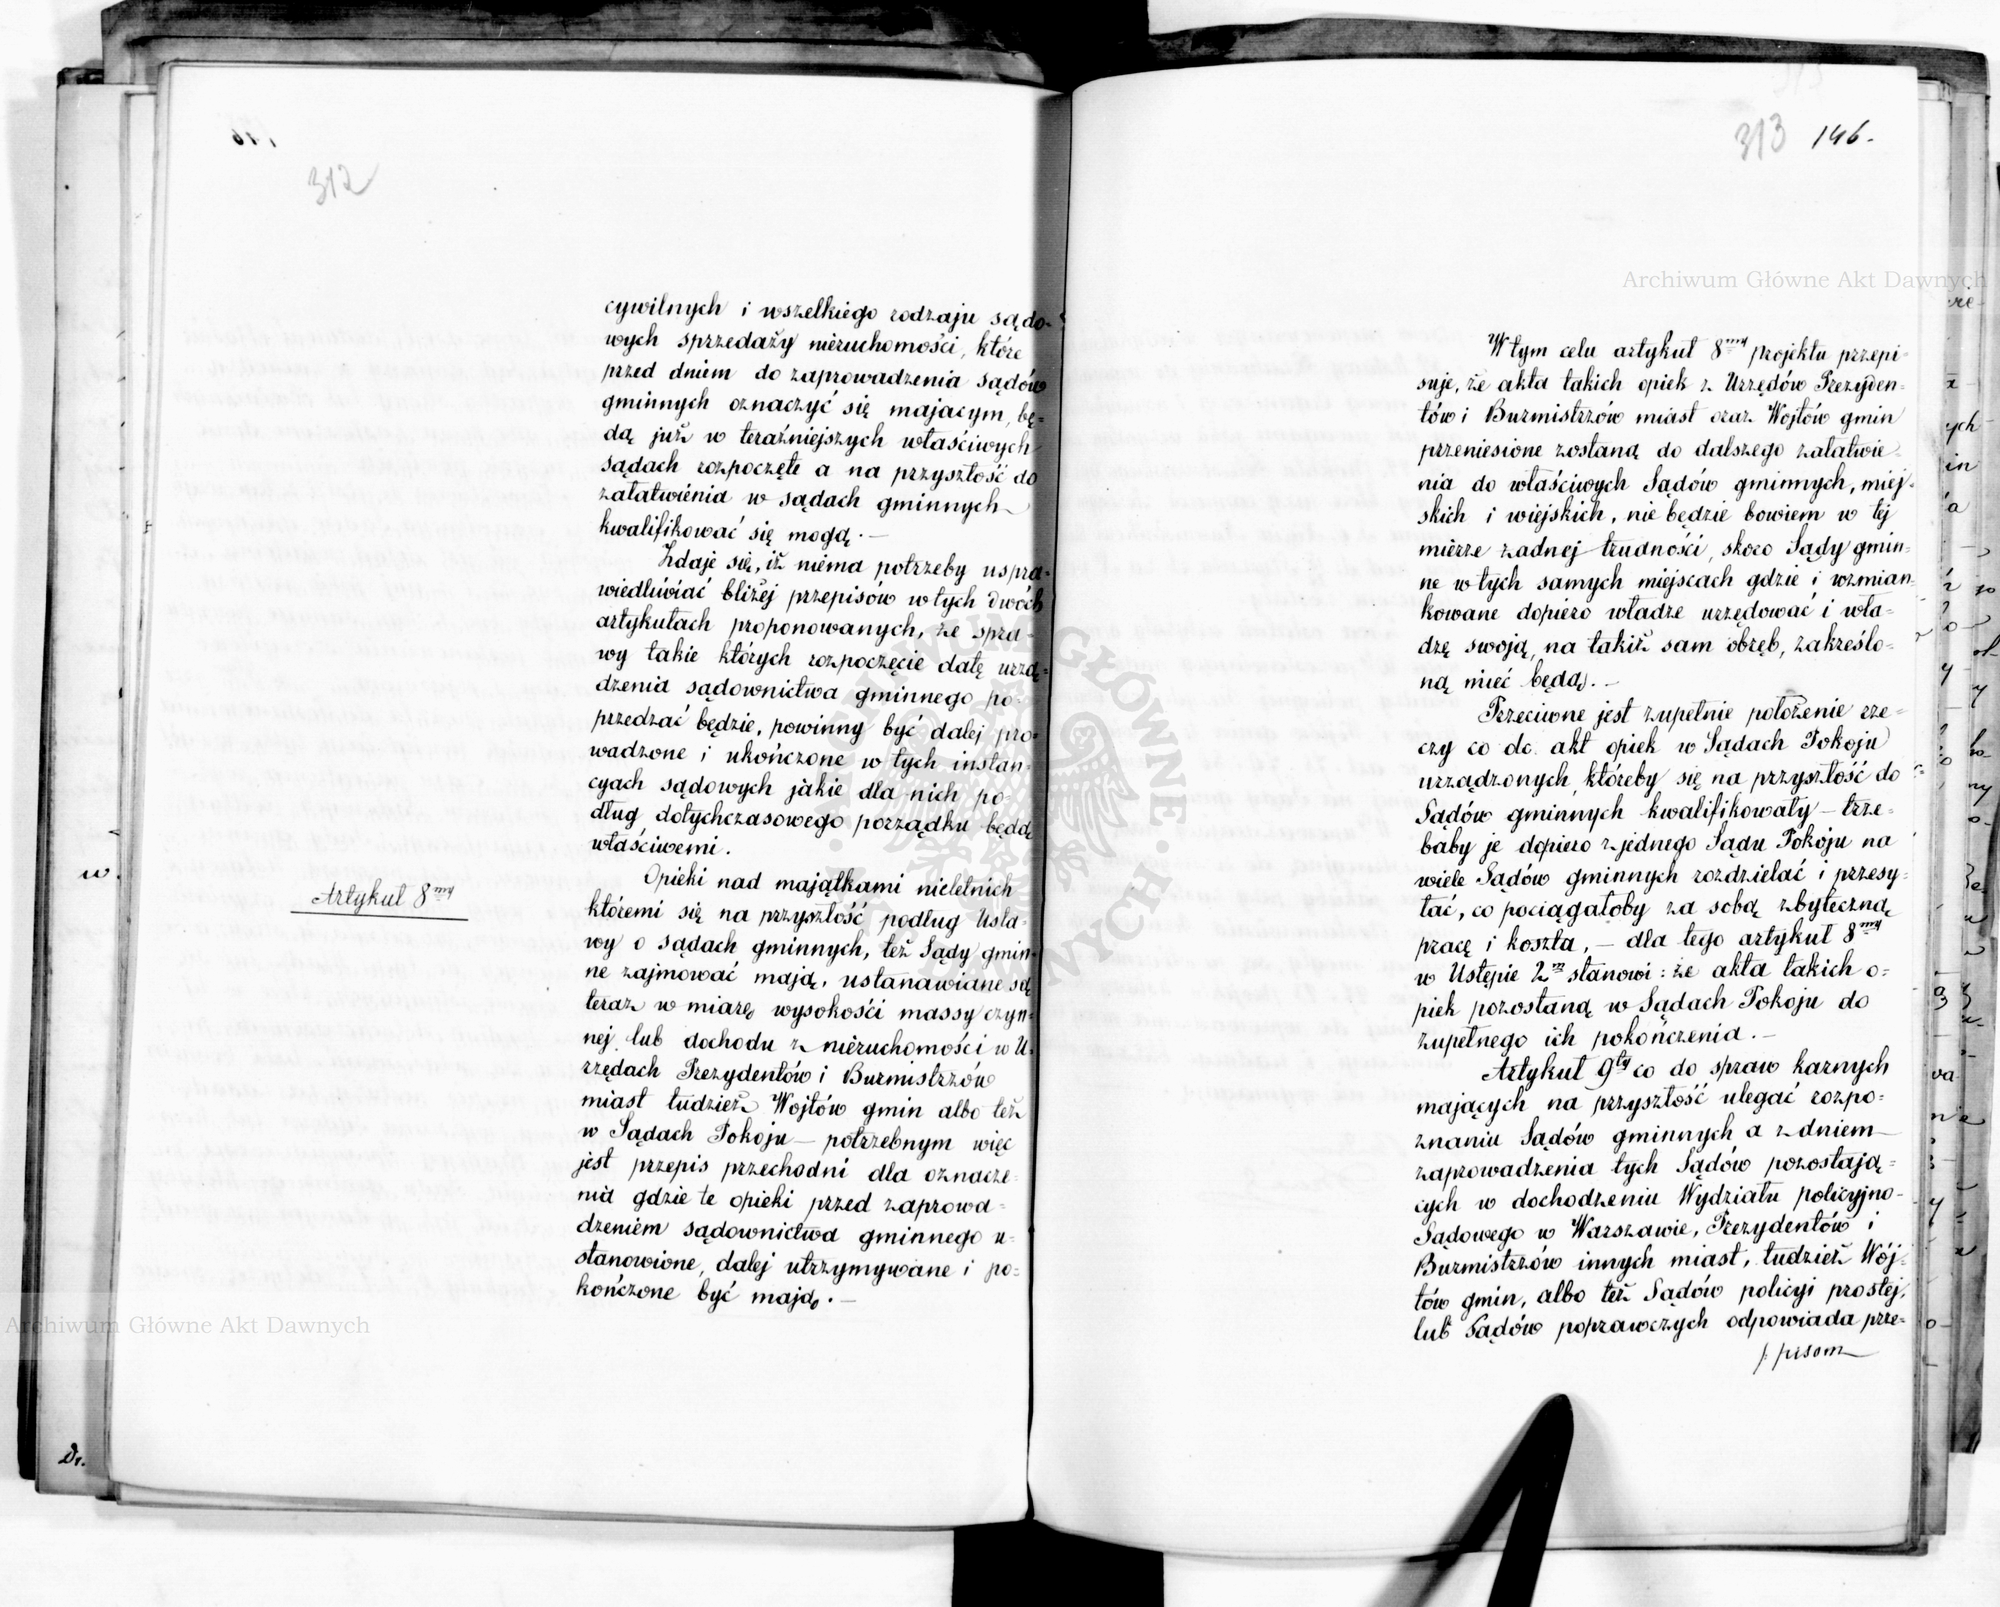 312
cywilnych i wszelkiego rodzaju sądo-
wych sprzedaży nieruchomości, które
przed dniem do zaprowadzenia sądów
gminnych oznaczyć się mającym, bę-
dą już w teraźniejszych właściwych
sądach rozpoczęte a na przyszłość do
załatwienia w sądach gminnych
kwalifikować się mogą. —
Zdaje się, iż niema potrzeby uspra-
wiedliwiać bliżej przepisów w tych dwóch
artykułach proponowanych, że spra-
wy takie których rozpoczęcie datę urzą-
dzenia sądownictwa gminnego po-
przedzać będzie, powinny być dalej pro-
wadzone i ukończone w tych instan-
cyach sądowych jakie dla nich po-
dług dotychczasowego porządku będą
właściwemi.
Artykuł 8my
Opieki nad majątkami nieletnich
któremi się na przyszłość podług Usta-
wy o sądach gminnych, też Sądy gmin-
ne zajmować mają, ustanawiane są
teraz w miarę wysokości massy czyn-
nej lub dochodu z nieruchomości w U-
rzędach Prezydentów i Burmistrzów
miast tudzież Wójtów gmin albo też
w Sądach Pokoju — potrzebnym więc
jest przepis przechodni dla oznacze-
nia gdzie te opieki przed zaprowa-
dzeniem sądownictwa gminnego u-
stanowione, dalej utrzymywane i po-
kończone być mają. —
w.
Dr.
313 146.
W tym celu artykuł 8my projektu przepi-
suje, że akta takich opiek z Urzędów Prezyden-
tów i Burmistrzów miast oraz Wójtów gmin
przeniesione zostaną do dalszego załatwie-
nia do właściwych Sądów gminnych, miej-
skich i wiejskich, nie będzie bowiem w tej
mierze żadnej trudności, skoro Sądy gmin-
ne w tych samych miejscach gdzie i wzmian-
kowane dopiero władze urzędować i wła-
dzę swoją, na takiż sam obręb, zakreślo-
ną mieć będą. —
Przeciwne jest zupełnie położenie rze-
czy co do akt opiek w Sądach Pokoju
urządzonych, któreby się na przyszłość do
Sądów gminnych kwalifikowały — trze-
baby je dopiero z jednego Sądu Pokoju na
wiele Sądów gminnych rozdzielać i przesy-
łać, co pociągałoby za sobą zbyteczną
pracę i koszta, — dla tego artykuł 8my
w Ustępie 2m stanowi: że akta takich o-
piek pozostaną w Sądach Pokoju do
zupełnego ich pokończenia. —
Artykuł 9ty co do spraw karnych
mających na przyszłość ulegać rozpo-
znaniu Sądów gminnych a z dniem
zaprowadzenia tych Sądów pozostają-
cych w dochodzeniu Wydziału policyjno-
Sądowego w Warszawie, Prezydentów i
Burmistrzów innych miast, tudzież Wój-
tów gmin, albo też Sądów policyi prostej,
lub Sądów poprawczych odpowiada prze-
/: pisom
Archiwum Główne Akt Dawnych
Archiwum Główne Akt Dawnych
ARCHIWUM GŁÓWNE AKT DAWNYCH